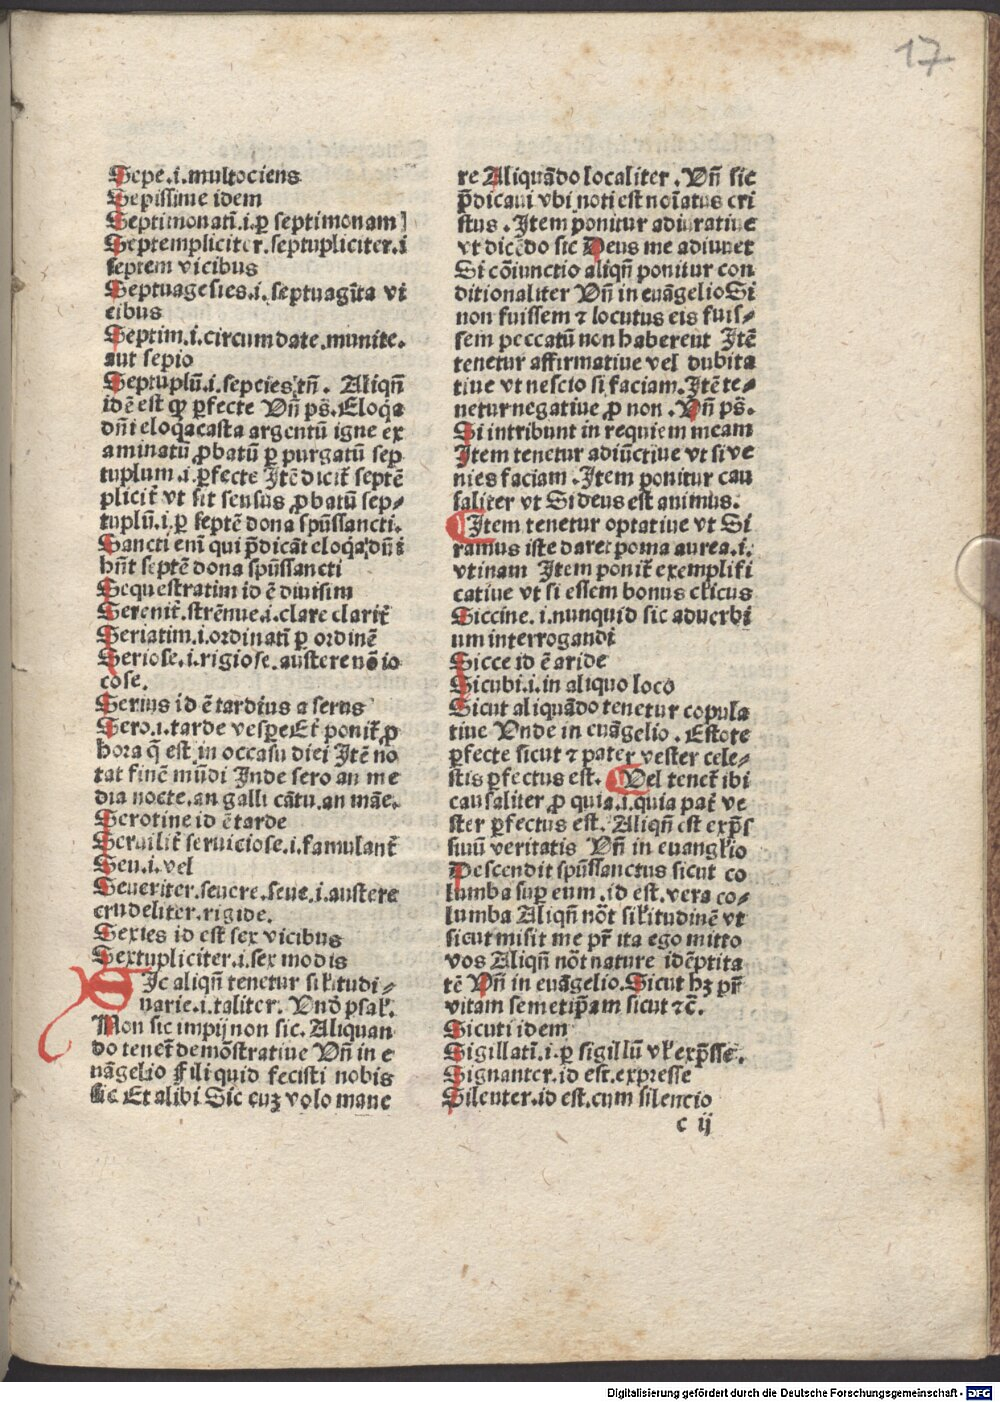 17
Sepe.i.multociens
Sepissime idem
Septimonatī.i.ꝑ septimonam]
Septempliciter.septupliciter.i
septem vicibus
Septuagesies.i.septuagīta vi
cibus
Septim.i.circumdate.munite.
aut sepio
Septuplū.i.sepcies tñ. Aliqñ
idē est ꝙ ꝑfecte Vñ ps̄.Eloq̄a
dñi eloq̄acasta argentū igne ex
aminatū ꝓbatū ꝑ purgatū sep
tuplum.i.ꝑfecte Itē dicit̄ septē
plicit̄ vt sit sensus ꝓbatū sep⸗
tuplū.i.ꝑ septē dona spūssancti.
Sancti enī qui p̄dicāt eloq̄a dñi
hñt septē dona spūssancti
Sequestratim id ē diuisim
Serenit̄.strēnue.i.clare clarit̄
Seriatim.i.ordinatī ꝑ ordinē
Seriose.i.rigiose.austere nō io
cose.
Serius id ē tardius a serus
Sero.i.tarde vesꝑe Et ponit̄ ꝓ
hora q̄ est in occasu diei Itē no
tat finē mūdi Inde sero an me
dia nocte.an galli cātu.an māe.
Serotine id ē tarde
Seruilit̄ seruiciose.i.famulant̄
Seu.i.vel
Seueriter.seuere.seue.i.austere
crudeliter.rigide.
Sexies id est sex vicibus
Sextupliciter.i.sex modis
SIc aliqñ tenetur silitudi⸗
narie.i.taliter. Vnd̄ psal̄.
Non sic impij non sic. Aliquan
do tenet̄ demōstratiue Vñ in e
uāgelio Fili quid fecisti nobis
sic Et alibi Sic euꝫ volo mane
re Aliquādo localiter.Vñ sic
p̄dicaui vbi noti est noīatus cri
stus.Item ponitur adiuratiue
vt dicēdo sic Deus me adiuuet
Si cōiunctio aliqñ ponitur con
ditionaliter Vñ in euāgelio Si
non fuissem ⁊ locutus eis fuis⸗
sem peccatū non haberent Itē
tenetur affirmatiue vel dubita
tiue vt nescio si faciam.Itē te⸗
netur negatiue ꝓ non.Vñ ps̄.
Si intribunt in requiem meam
Item tenetur adiūctiue vt si ve
nies faciam.Item ponitur cau
saliter vt Si deus est animus.
Item tenetur optatiue vt Si
ramus iste daret poma aurea.i.
vtinam Item ponit̄ exemplifi
catiue vt si essem bonus cl̄icus
Siccine.i.nunquid sic aduerbi
um interrogandi
Sicce id ē aride
Sicubi.i.in aliquo loco
Sicut aliquādo tenetur copula
tiue Vnde in euāgelio.Estote
ꝑfecte sicut ⁊ pater vester cele⸗
stis ꝑfectus est. Vel tenet̄ ibi
causaliter ꝓ quia.i.quia pat̄ ve
ster ꝑfectus est. Aliqñ est exp̄s
siuū veritatis Vñ in euangl̄io
Descendit spūssanctus sicut co
lumba suꝑ eum.id est.vera co⸗
lumba Aliqñ nōt sil̄itudinē vt
sicut misit me pr̄ ita ego mitto
vos Aliqñ nōt nature idēptita
tē Vñ in euāgelio.Sicut hꝫ pr̄
vitam semetip̄am sicut ⁊c̄.
Sicuti idem
Sigillatī.i.ꝑ sigillū vl̄ exp̄sse.
Signanter.id est.expresse
Silenter.id est.cum silencio
c ij
Digitalisierung gefördert durch die Deutsche Forschungsgemeinschaft - DFG